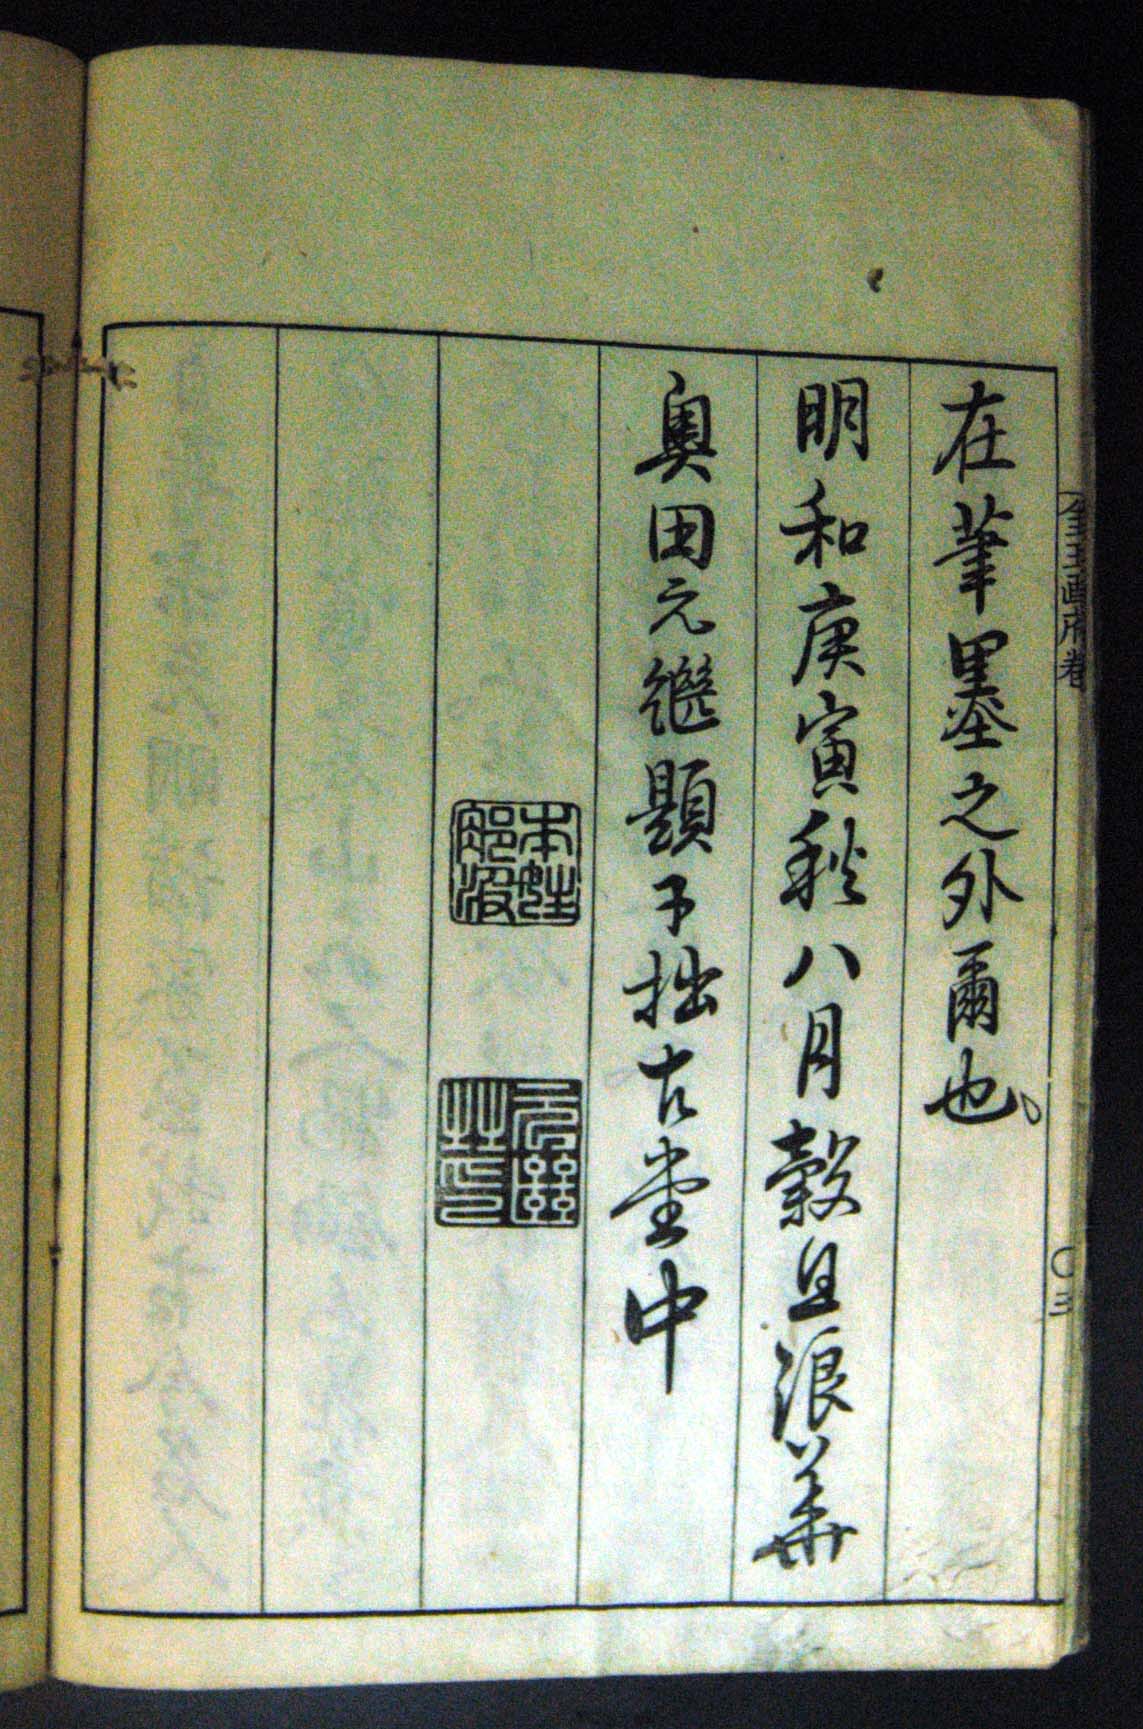 在筆墨之外爾也。
明和庚寅秋八月穀旦浪華
奧田元繼題于拙古堂中
全玉画府卷
〇三